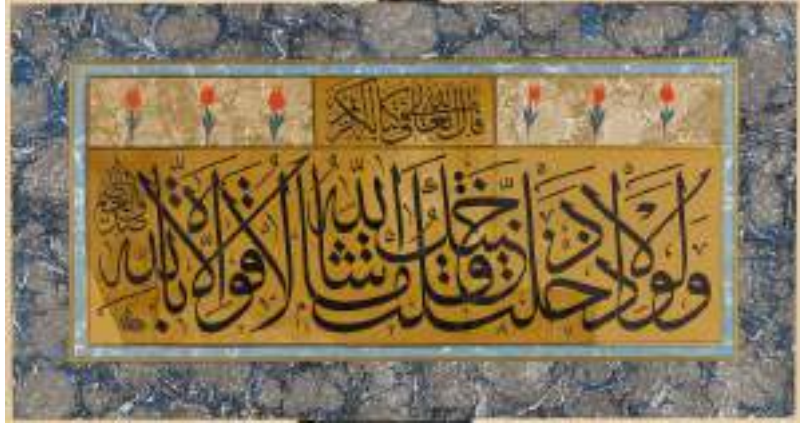 قال الله تعالى في كتابه الكريم
ولولا إذ دخلت جنتك قلت ما شاء الله لا قوة إلا بالله